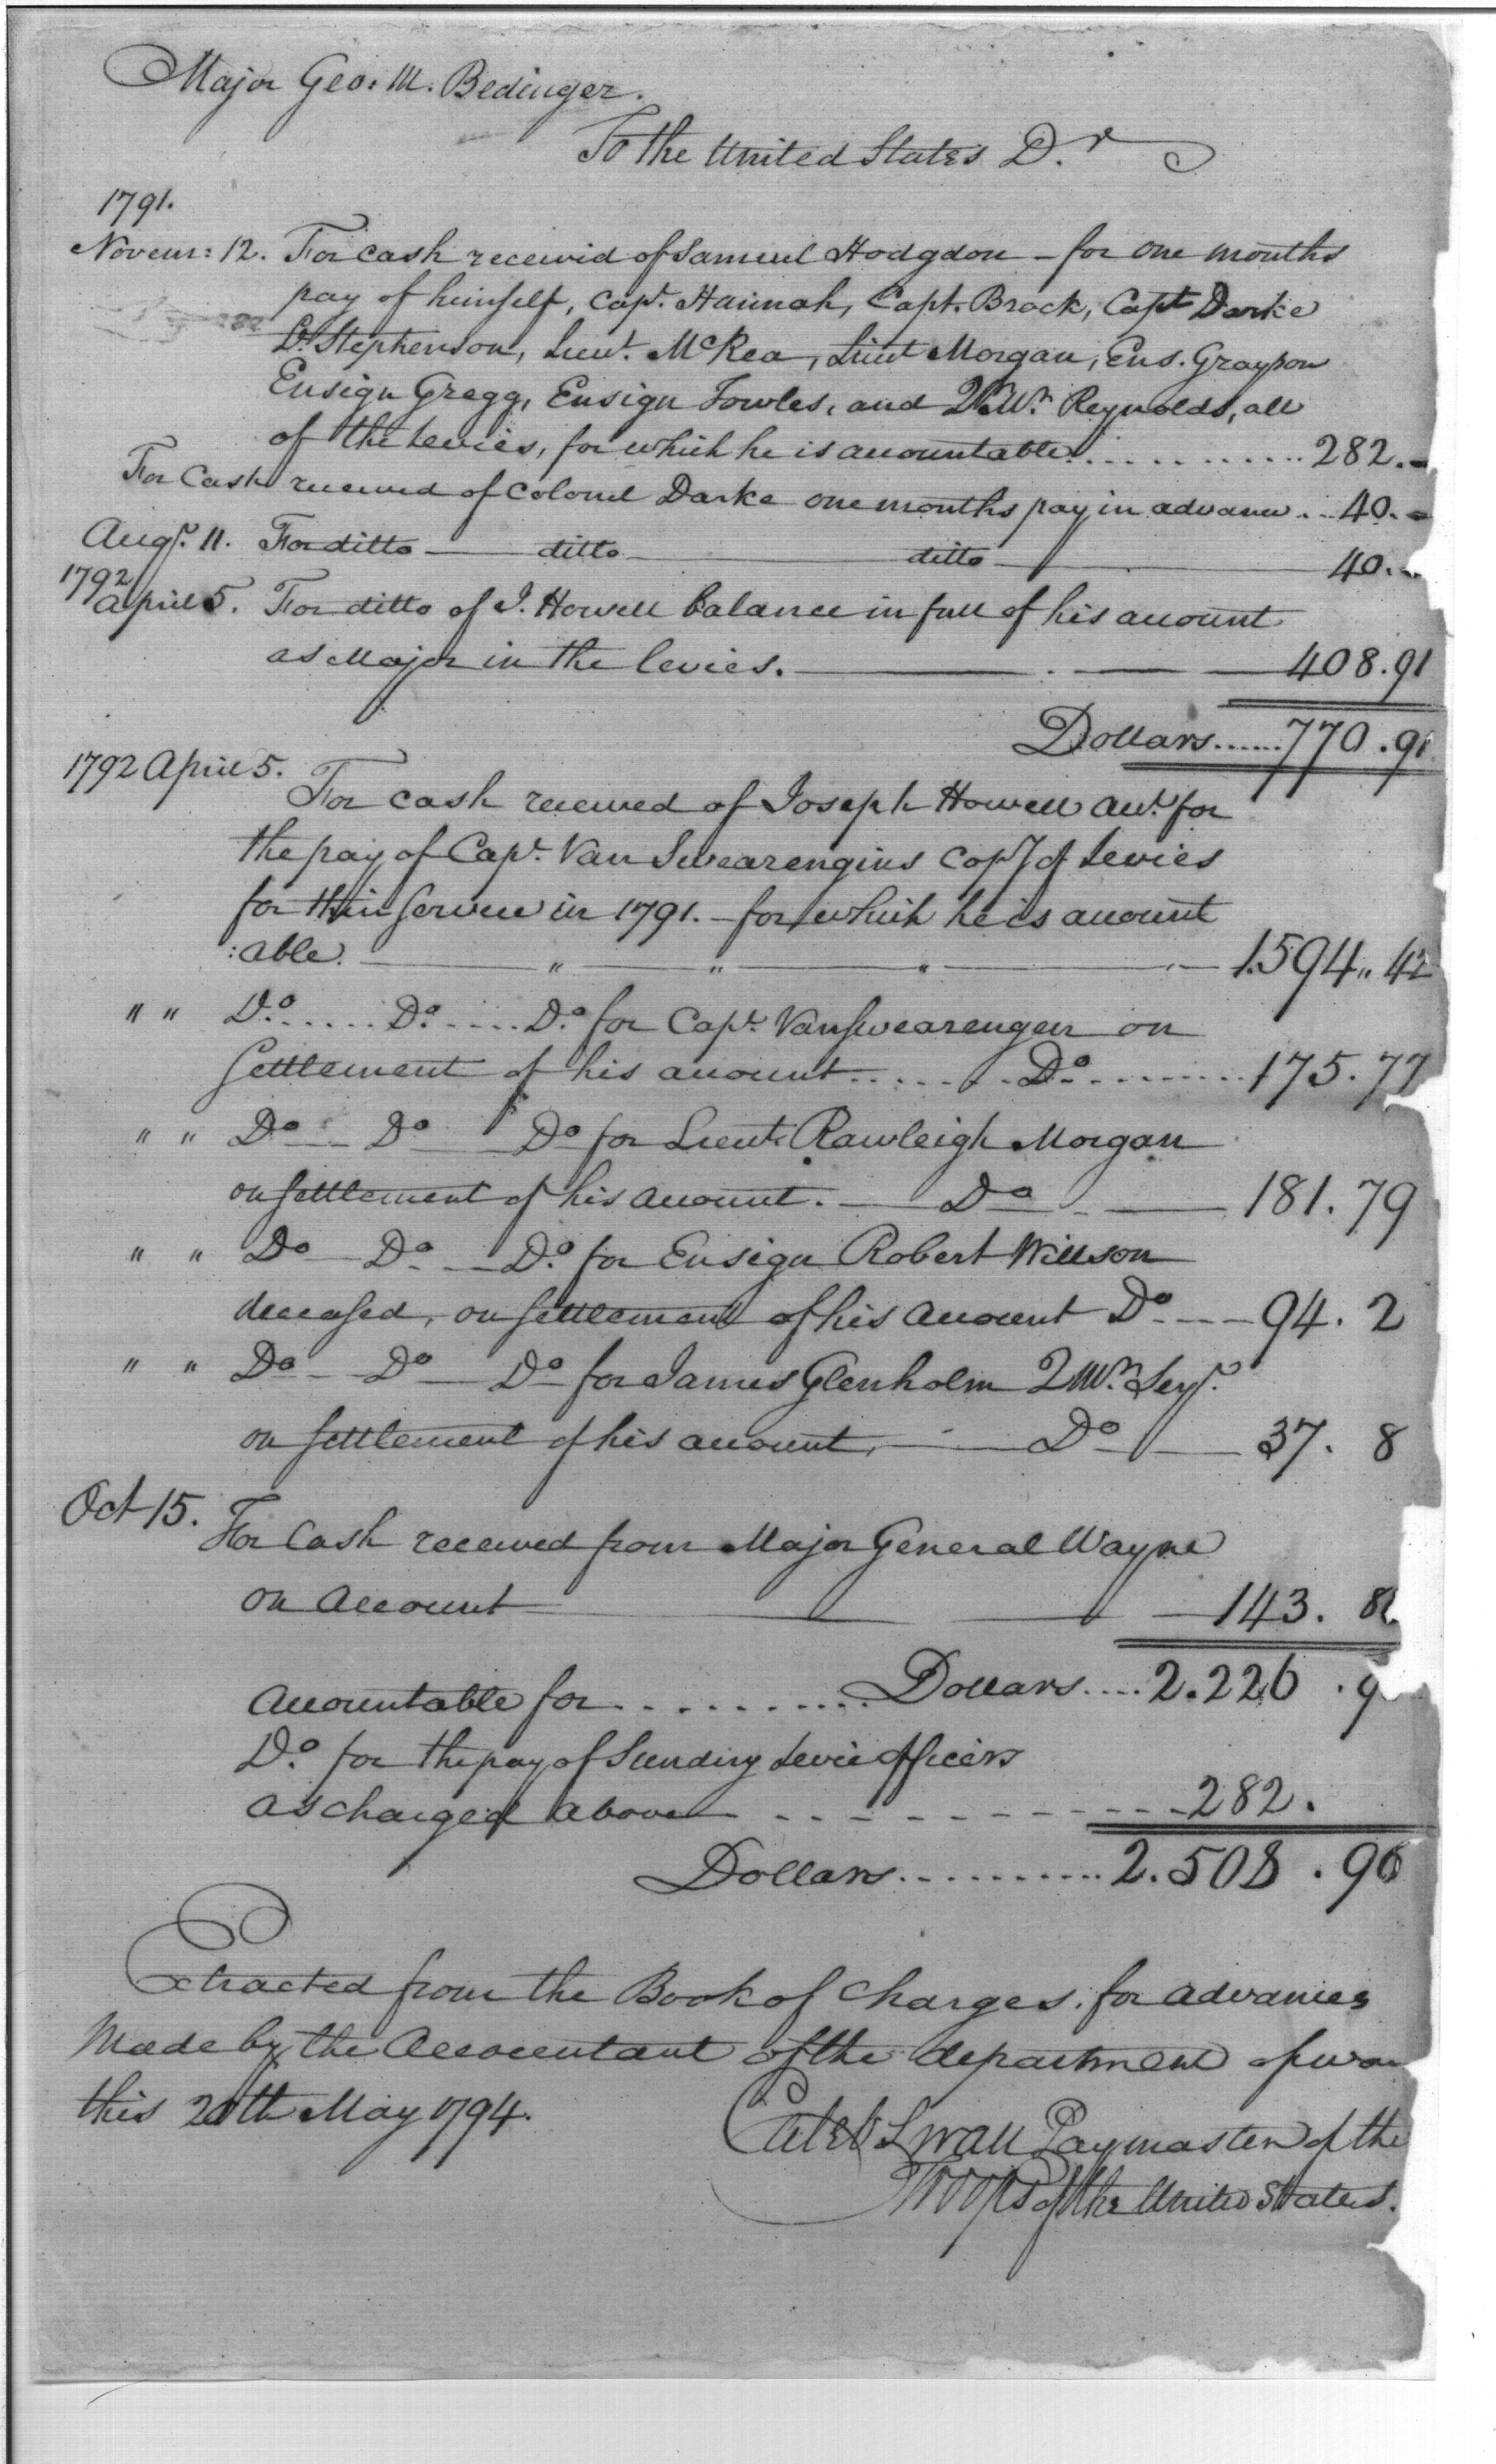 Major Geo: M. Bedinger.
To the United States Dr
1791.
Novem: 12. For cash received of Samuel Hodgdon – for one months
pay of himself, Capt. Hannah, Capt. Brock, Capt Darke
Lt Stephenson, Lieut. McRea, Lieut Morgan, Ens. Grayson
Ensign Gregg, Ensign Fowles, and Q.Mr. Reynolds, all
of the Levies, for which he is accountable............ 282.-
For Cash received of Colonel Darke one months pay in advance... 40.-
Augt. 11. For ditto — ditto — ditto — 40.-
1792
April 5. For ditto of J. Howell balance in full of his account
as Major in the levies. — 408.91
Dollars......770.91
1792 April 5.
For cash received of Joseph Howell Acct. for
the pay of Capt. Van Swearengins Copy of Levies
for their Service in 1791. – for which he is account
:able. — " — " — " — 1.594,, 42
" " Do. ..... Do. ..... Do. for Capt. Vanswearengen on
Settlement of his account....... Do ......... 175.77
" " Do — Do — Do for Lieut. Rawleigh Morgan
on settlement of his account. — Do — 181.79
" " Do — Do. — Do. for Ensign Robert Willson
deceased, on settlement of his account Do — 94. 2
" " Do — Do — Do for James Glenholm Q Mr. Serjt.
on settlement of his account, — Do — 37. 8
Oct 15. For Cash received from Major General Wayne
on Account — 143. 8
Accountable for........... Dollars.... 2.226 . 9
Do. for the pay of Sundry Levie officers
as charged above - - - - - - - - - 282.
Dollars.......... 2.508 . 96
Extracted from the Book of Charges. for advances
Made by the Accountant of the department of war
this 20th May 1794.
Caleb Swan Paymaster of the
Troops of the United States.